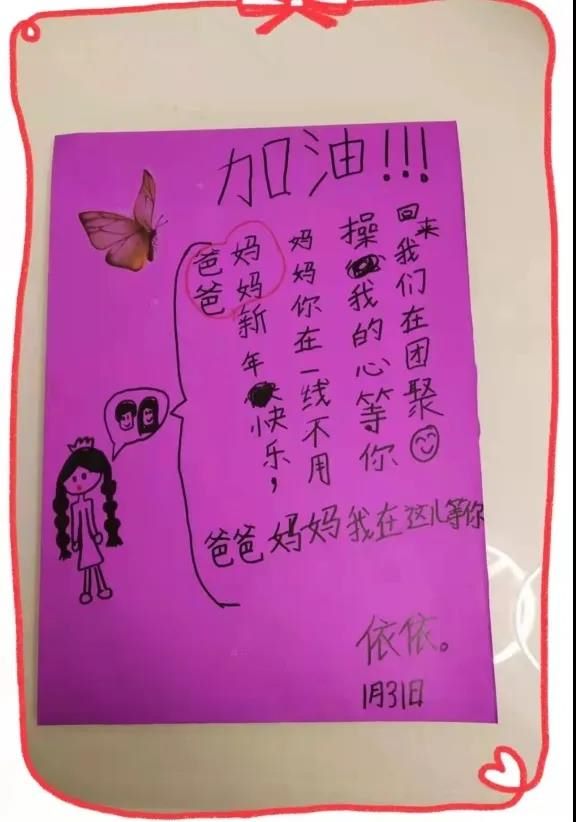 加油!!!
爸爸
妈妈新年快乐，
妈妈你在一线不用
操我的心等你
回来我们在团聚
爸爸妈妈我在这儿等你
依依。
1月31日